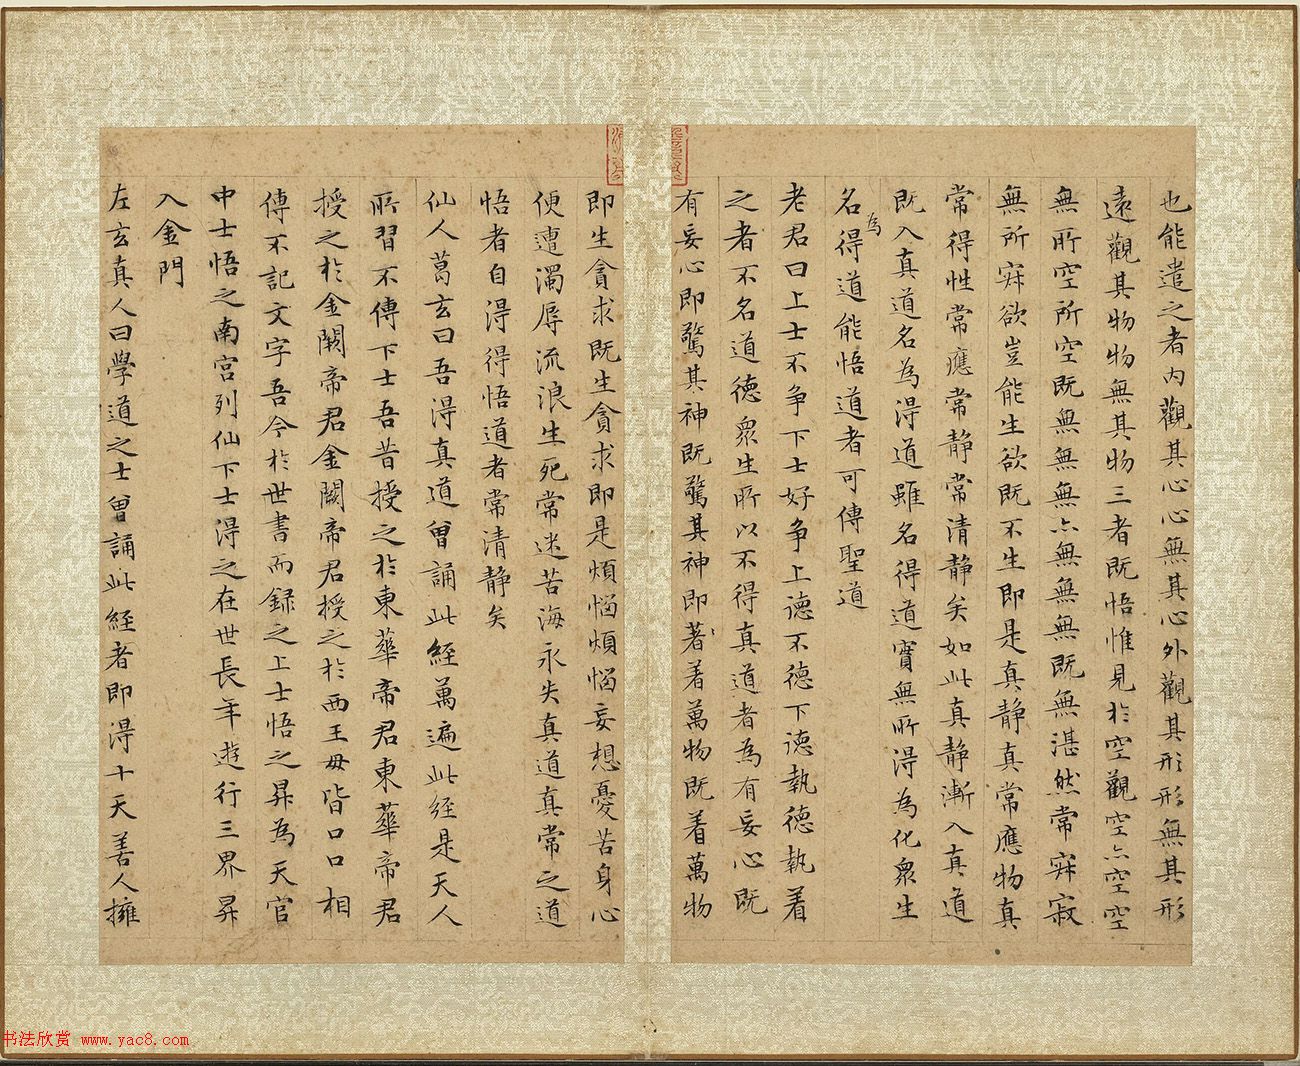 也能遣之者內觀其心心無其心外觀其形形無其形
遠觀其物物無其物三者既悟惟見於空觀空亦空空
無所空所空既無無無亦無無無既無湛然常寂寂
無所寂欲豈能生欲既不生即是真静真常應物真
常得性常應常静常清静矣如此真静漸入真道
既入真道名為得道雖名得道實無所得為化眾生
名為得道能悟道者可傳聖道
老君曰上士不争下士好争上德不德下德執德執着
之者不名道德眾生所以不得真道者為有妄心既
有妄心即驚其神既驚其神即著着萬物既着萬物
即生貪求既生貪求即是煩惱煩惱妄想憂苦身心
便遭濁辱流浪生死常迷苦海永失真道真常之道
悟者自得得悟道者常清静矣
仙人葛玄曰吾得真道曾誦此經萬遍此經是天人
所習不傳下士吾昔授之於東華帝君東華帝君
授之於金闕帝君金闕帝君授之於西王母皆口口相
傳不記文字吾今於世書而録之上士悟之昇為天官
中士悟之南宫列仙下士得之在世長年遊行三界昇
入金門
左玄真人曰學道之士曾誦此經者即得十天善人擁
书法欣赏 www.yac8.com